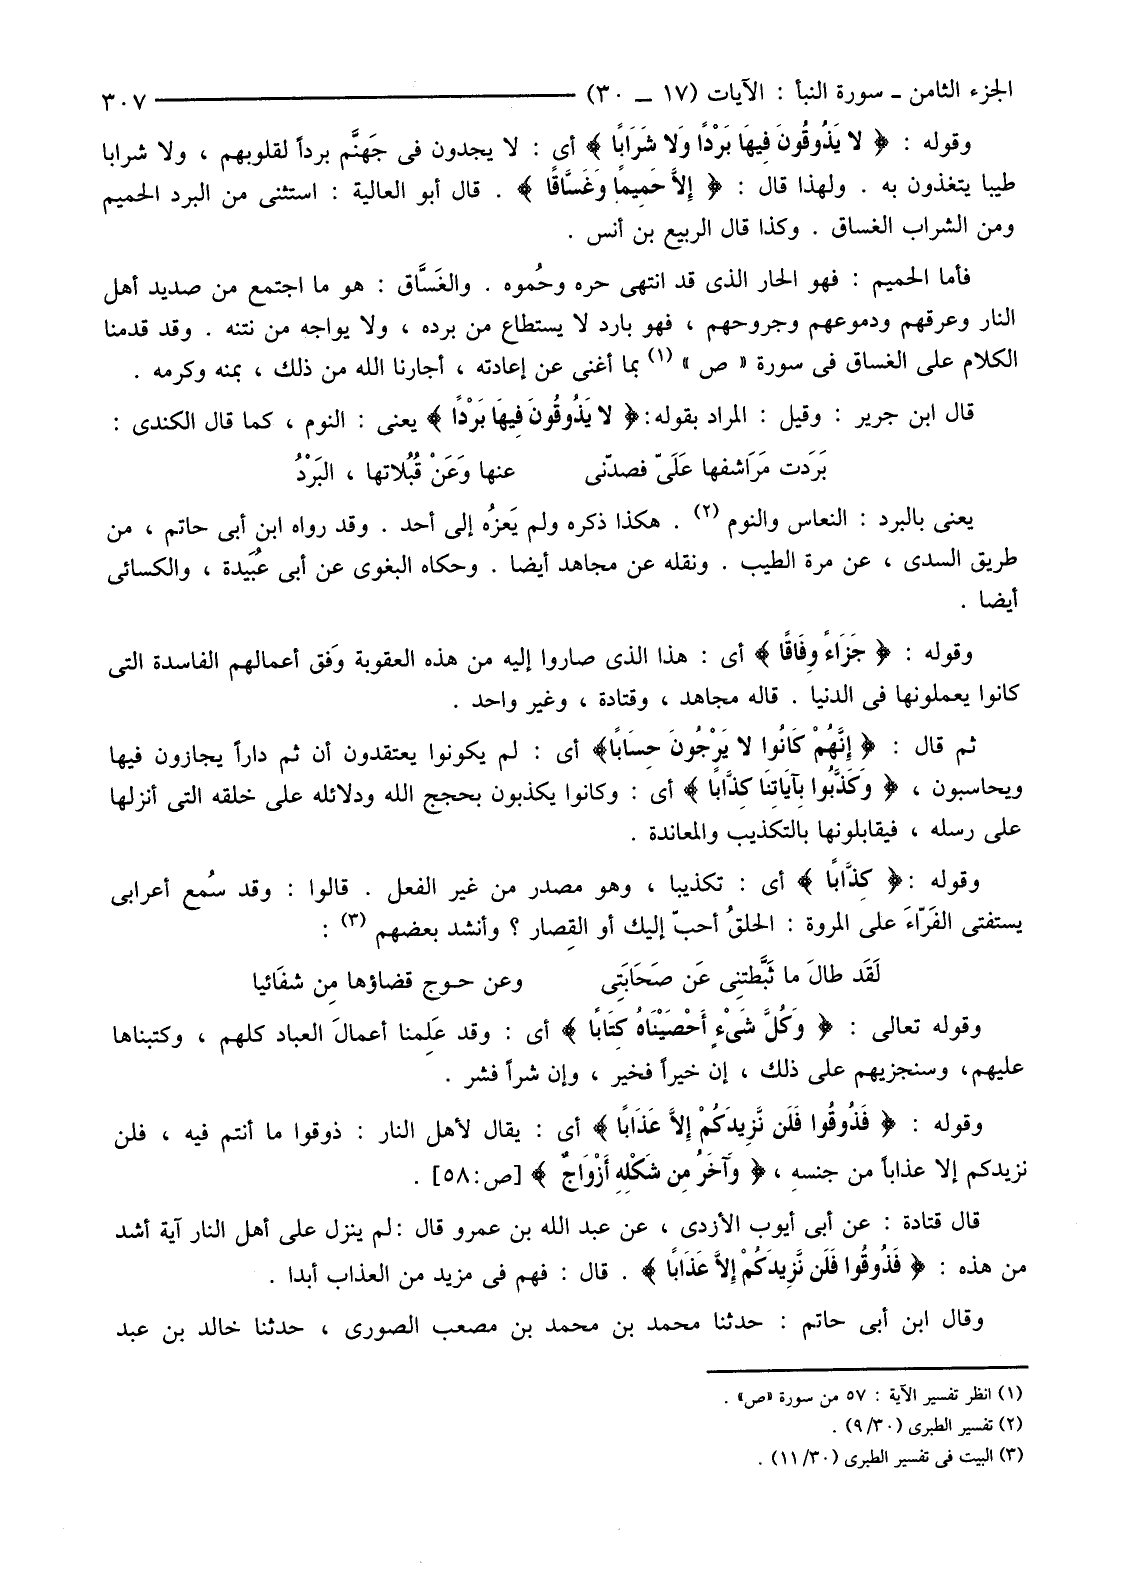 الجزء الثامن ـ سورة النبأ : الآيات (١٧ ــ ٣٠) ٣٠٧
وقوله : ﴿ لا يَذُوقُونَ فِيهَا بَرْدًا وَلا شَرَابًا ﴾ أى : لا يجدون فى جَهنَّم برداً لقلوبهم ، ولا شرابا
طيبا يتغذون به . ولهذا قال : ﴿ إِلاَّ حَمِيمًا وَغَسَّاقًا ﴾ . قال أبو العالية : استثنى من البرد الحميم
ومن الشراب الغساق . وكذا قال الربيع بن أنس .
فأما الحميم : فهو الحار الذى قد انتهى حره وحُموه . والغَسَّاق : هو ما اجتمع من صديد أهل
النار وعرقهم ودموعهم وجروحهم ، فهو بارد لا يستطاع من برده ، ولا يواجه من نتنه . وقد قدمنا
الكلام على الغساق فى سورة « ص » (١) بما أغنى عن إعادته ، أجارنا الله من ذلك ، بمنه وكرمه .
قال ابن جرير : وقيل : المراد بقوله: ﴿ لا يَذُوقُونَ فِيهَا بَرْدًا ﴾ يعنى : النوم ، كما قال الكندى :
بَرَدت مَرَاشفها عَلَىّ فصدّنى عنها وَعَنْ قُبُلاتها ، البَرْدُ
يعنى بالبرد : النعاس والنوم (٢) . هكذا ذكره ولم يَعزُه إلى أحد . وقد رواه ابن أبى حاتم ، من
طريق السدى ، عن مرة الطيب . ونقله عن مجاهد أيضا . وحكاه البغوى عن أبى عُبَيدة ، والكسائى
أيضا .
وقوله : ﴿ جَزَاءً وِفَاقًا ﴾ أى : هذا الذى صاروا إليه من هذه العقوبة وَفق أعمالهم الفاسدة التى
كانوا يعملونها فى الدنيا . قاله مجاهد ، وقتادة ، وغير واحد .
ثم قال : ﴿ إِنَّهُمْ كَانُوا لا يَرْجُونَ حِسَابًا﴾ أى : لم يكونوا يعتقدون أن ثم داراً يجازون فيها
ويحاسبون ، ﴿ وَكَذَّبُوا بِآيَاتِنَا كِذَّابًا ﴾ أى : وكانوا يكذبون بحجج الله ودلائله على خلقه التى أنزلها
على رسله ، فيقابلونها بالتكذيب والمعاندة .
وقوله : ﴿ كِذَّابًا ﴾ أى : تكذيبا ، وهو مصدر من غير الفعل . قالوا : وقد سُمع أعرابى
يستفتى الفَرّاءَ على المروة : الحلقُ أحبّ إليك أو القِصار ؟ وأنشد بعضهم (٣) :
لَقَد طالَ ما ثَبَّطتنِى عَن صَحَابَتِى وعن حـوج قضاؤها مِن شفَائيا
وقوله تعالى : ﴿ وَكُلَّ شَيْءٍ أَحْصَيْنَاهُ كِتَابًا ﴾ أى : وقد عَلِمنا أعمالَ العباد كلهم ، وكتبناها
عليهم، وسنجزيهم على ذلك ، إن خيراً فخير ، وإن شراً فشر .
وقوله : ﴿ فَذُوقُوا فَلَن نَّزِيدَكُمْ إِلاَّ عَذَابًا ﴾ أى : يقال لأهل النار : ذوقوا ما أنتم فيه ، فلن
نزيدكم إلا عذاباً من جنسهِ ، ﴿ وَآخَرُ مِن شَكْلِهِ أَزْوَاجٌ ﴾ [ص:٥٨] .
قال قتادة : عن أبى أيوب الأزدى ، عن عبد الله بن عمرو قال :لم ينزل على أهل النار آية أشد
من هذه : ﴿ فَذُوقُوا فَلَن نَّزِيدَكُمْ إِلاَّ عَذَابًا ﴾ . قال : فهم فى مزيد من العذاب أبدا .
وقال ابن أبى حاتم : حدثنا محمد بن محمد بن مصعب الصورى ، حدثنا خالد بن عبد
(١) انظر تفسير الآية : ٥٧ من سورة «ص» .
(٢) تفسير الطبرى (٩/٣٠) .
(٣) البيت فى تفسير الطبرى (١١/٣٠) .